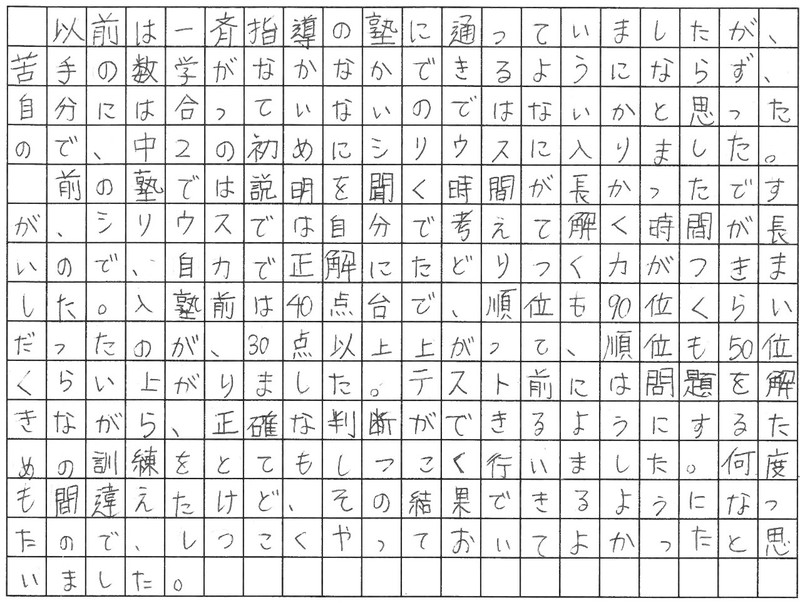 以前は一斉指導の塾に通っていましたが、
苦手の数学がなかなかできるようにならず、
自分には合っていないのではないかと思った
ので、中2の初めにシリウスに入りました。
　前の塾では説明を聞く時間が長かったです
が、シリウスでは自分で考えて解く時間が長
いので、自力で正解にたどりつく力がつきま
した。入塾前は40点台で、順位も90位くらい
だったのが、30点以上上がって、順位も50位
くらい上がりました。テスト前には問題を解
きながら、正確な判断ができるようにするた
めの訓練をとてもしつこく行いました。何度
も間違えたけど、その結果できるようになっ
たので、しつこくやっておいてよかったと思
いました。